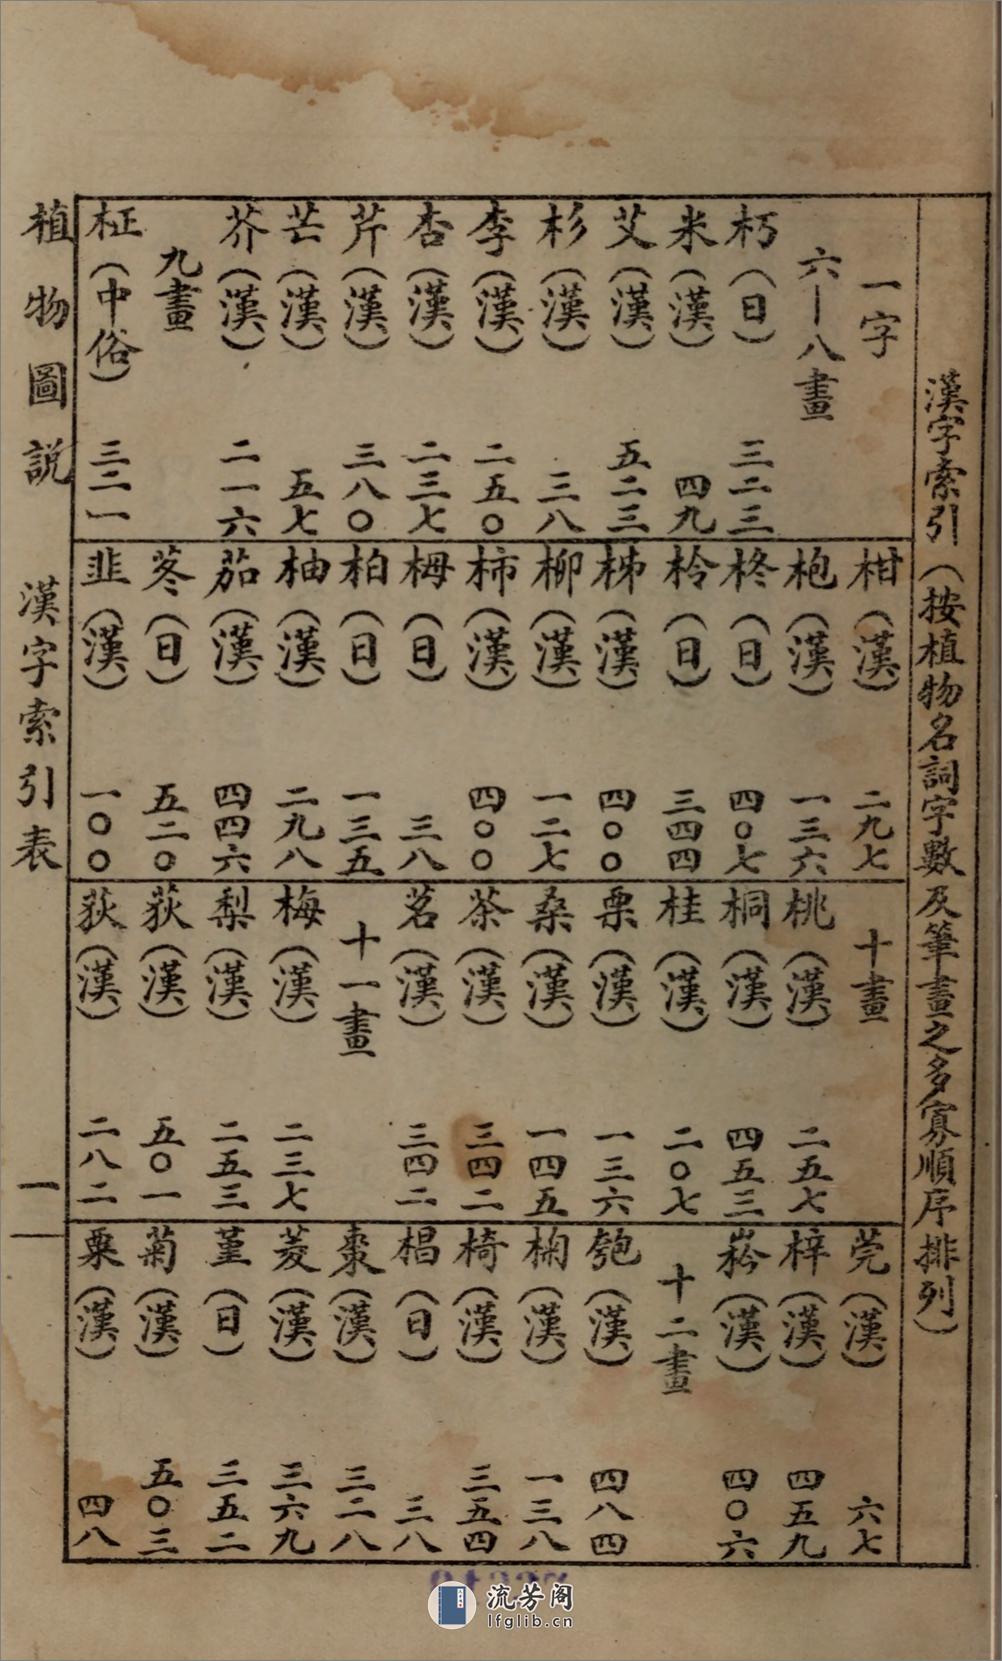 漢字索引(按植物名詞字數及筆畫之多寡順序排列)
一字
六—八畫
朽(日) 三二三
米(漢) 四九
艾(漢) 五二三
杉(漢) 三八
李(漢) 二五〇
杏(漢) 二三七
芹(漢) 三八〇
芒(漢) 五七
芥(漢) 二一六
九畫
柾(中俗) 三二一
柑(漢) 二九七
枹(漢) 一三六
柊(日) 四〇七
柃(日) 三四四
柹(漢) 四〇〇
柳(漢) 一二七
柿(漢) 四〇〇
栂(日) 三八
柏(日) 一三五
柚(漢) 二九八
茄(漢) 四四六
苳(日) 五二〇
韭(漢) 一〇〇
十畫
桃(漢) 二五七
桐(漢) 四五三
桂(漢) 二〇七
栗(漢) 一三六
桑(漢) 一四五
茶(漢) 三四二
茗(漢) 三四二
十一畫
梅(漢) 二三七
梨(漢) 二五三
荻(漢) 五〇一
荻(漢) 二八二
莞(漢) 六七
梓(漢) 四五九
梣(漢) 四〇六
十二畫
匏(漢) 四八四
椈(漢) 一三八
椅(漢) 三五四
椙(日) 三八
棗(漢) 三二八
菱(漢) 三六九
菫(日) 三五二
菊(漢) 五〇三
粟(漢) 四八
植物圖說 漢字索引表 一
流芳阁
lfglib.cn